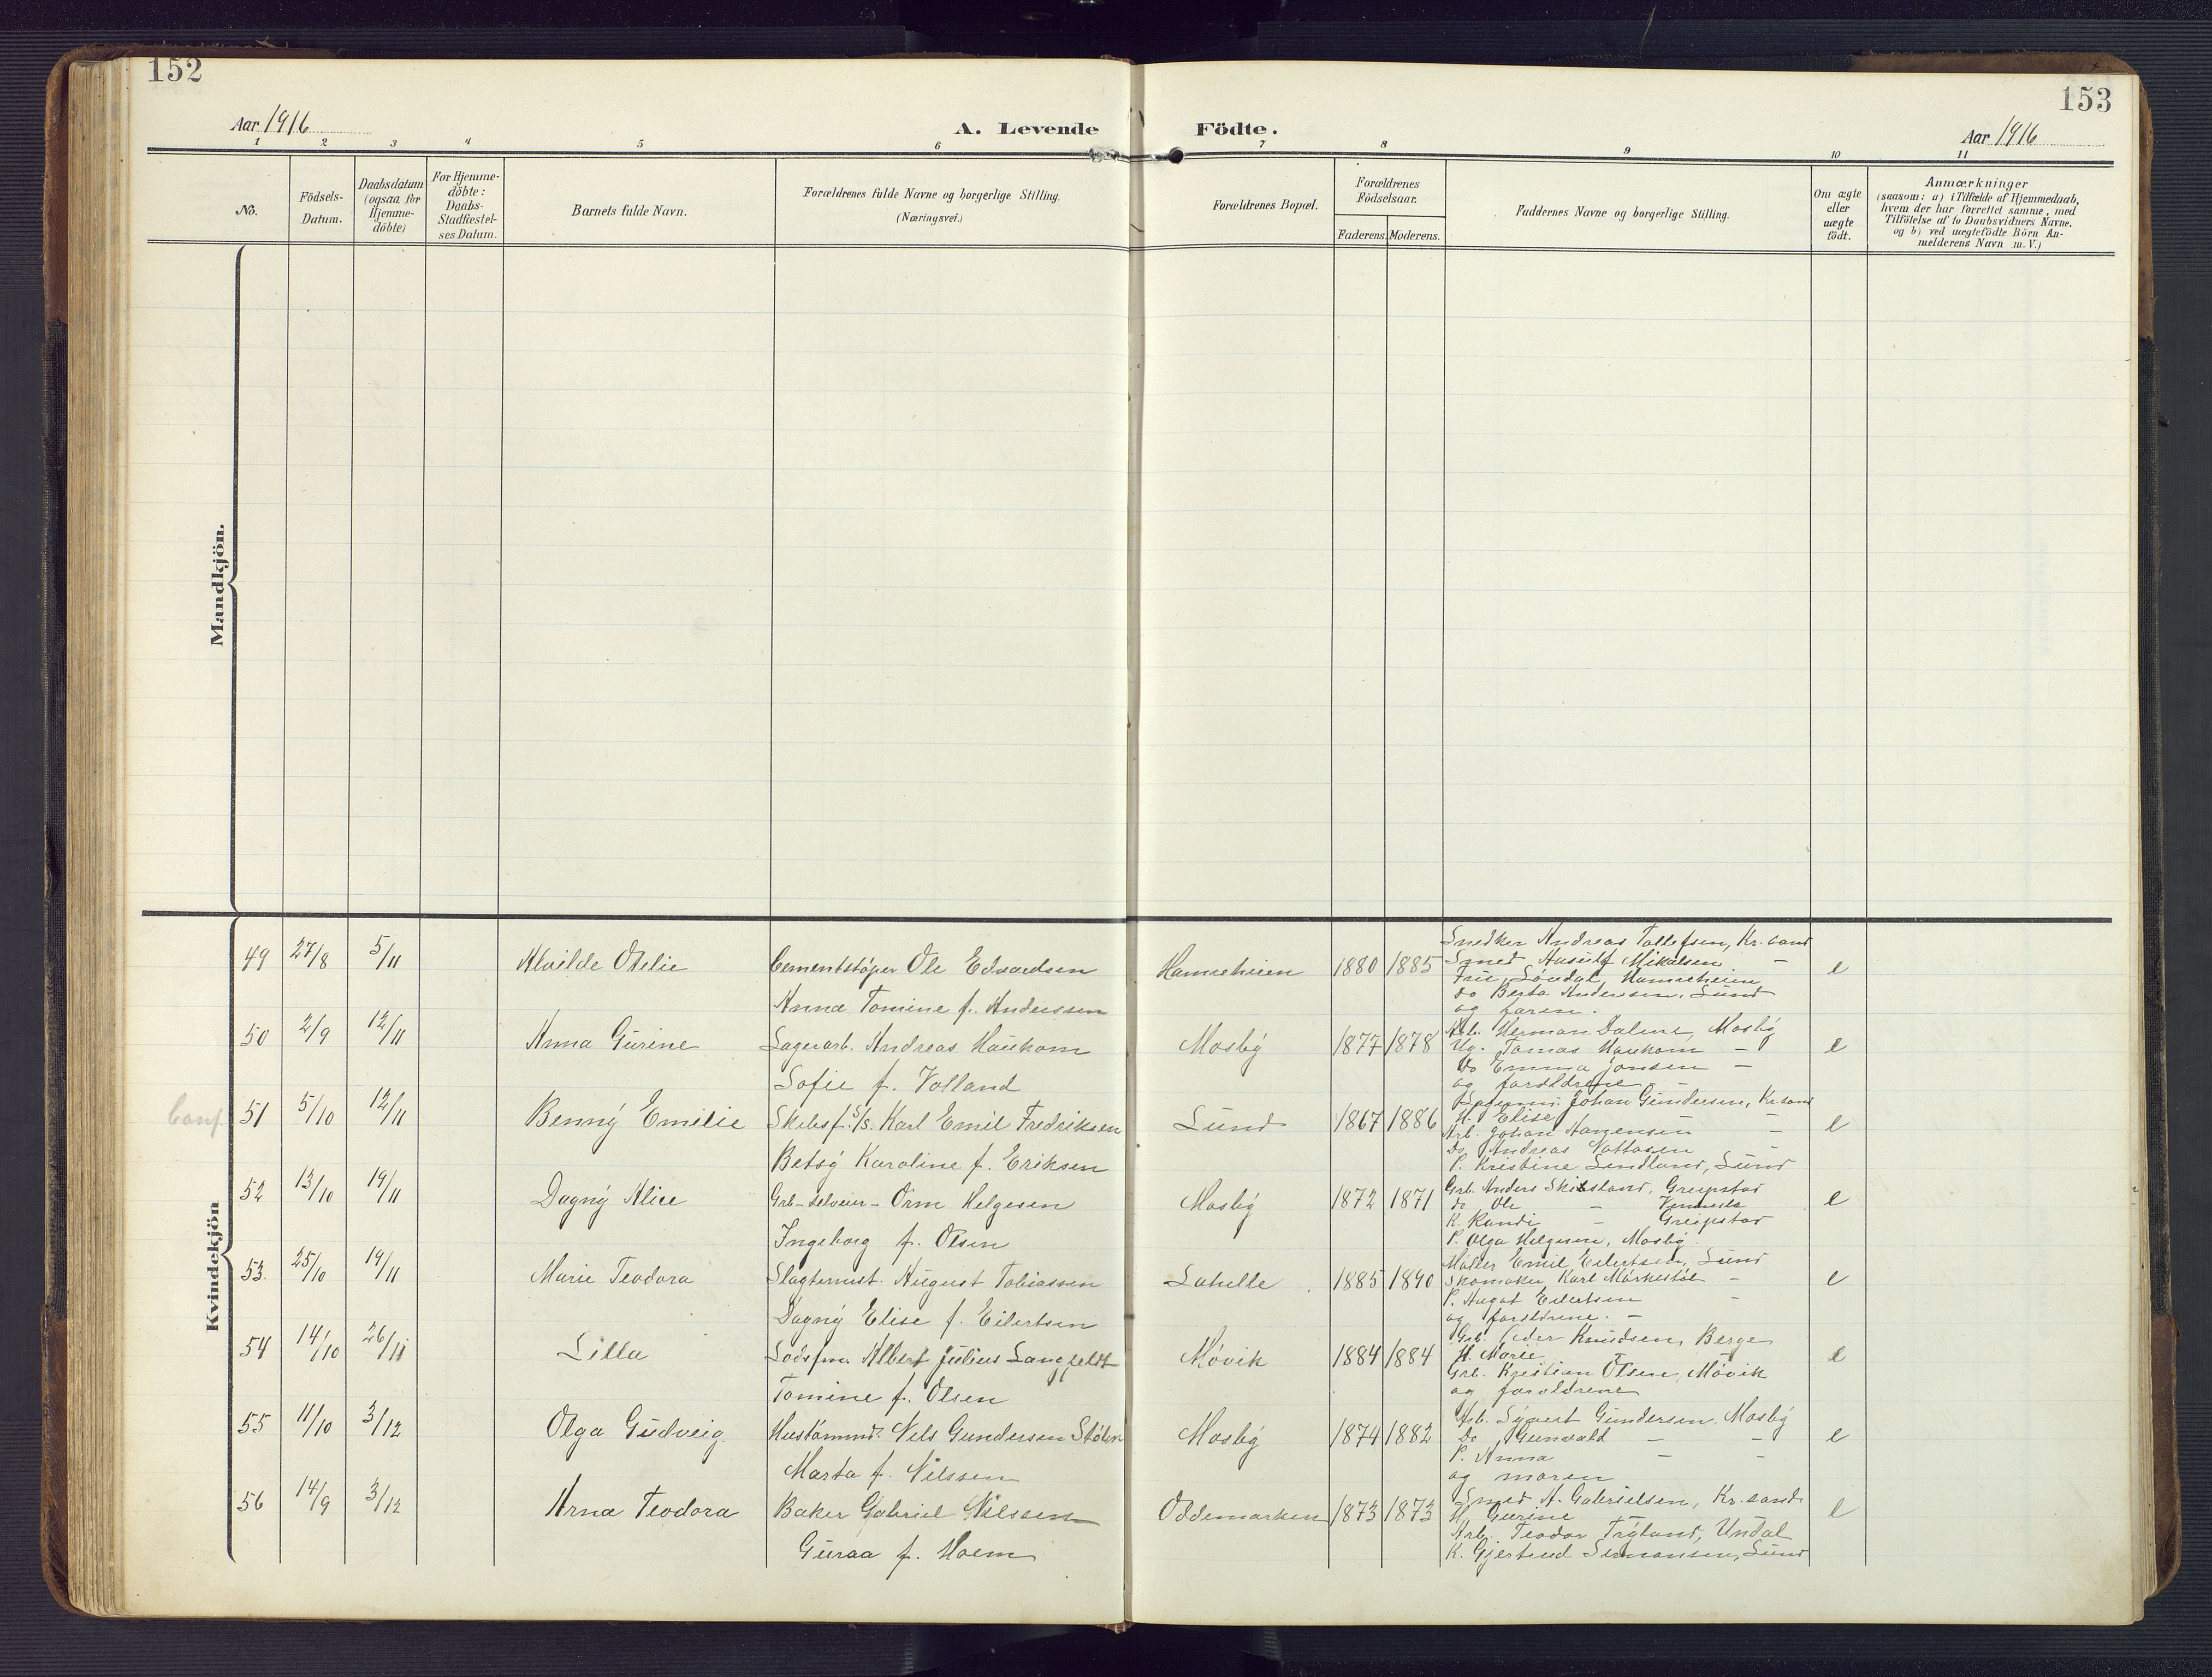 152
153
Aar 1916
A. Levende
Födte.
Aar 1916
1 2 3 4 5 6 7 8 9 10 11
No.
Födsels-
Datum.
Daabsdatum
(ogsaa for
Hjemme-
döbte)
For Hjemme-
döbte:
Daabs-
Stadfæstel-
ses Datum.
Barnets fulde Navn.
Forældrenes fulde Navne og borgerlige Stilling.
(Næringsvei.)
Forældrenes Bopæl.
Forældrenes
Födselsaar.
Faderens. Moderens.
Faddernes Navne og borgerlige Stilling.
Om ægte
eller
uægte
födt.
Anmærkninger
(saasom: a) i Tilfælde af Hjemmedaab,
hvem der har forrettet samme, med
Tilföielse af to Daabsvidners Navne.
og b) ved uægtefödte Börn An-
melderens Navn m. V.)
Mandkjön.
Kvindekjön
49 27/8 5/11 Alvilde Otelie Cementstøper Ole Edvardsen
Anna Tomine f. Anderssen
Hamreheien 1880 1885
Snedker Andreas Tallefsen, Kr.sand
Smed Mikalsen -
Frue Løvdal Hamreheien
do Berta Andersen, Lund
og faren.
e
50 2/9 12/11 Anna Gurine Lagerarb. Andreas Haukom
Sofie f. Volland
Mosby 1877 1878
Arb. Herman Dalene, Mosby
Ug. Tomas Haukom -
Do Emma Jonsen -
og forældrene -
e
Conf. 51 5/10 12/11 Benny Emilie Skibsf. S/S. Karl Emil Fredriksen
Betsy Karoline f. Eriksen
Lund 1867 1886
Johan Gundersen, Kr.sand
H. Elise -
Arb. Johan -
Do Andreas -
P. Kristine Lendland, Lund
e
52 13/10 19/11 Dagny Alice Grb-selveier- Orm Helgesen
Ingeborg f. Olsen
Mosby 1872 1871
Grb. Anders Greipstad
do Ole - Vennesla
K. Randi - Greipstad
P. Olga Helgesen, Mosby
e
53. 25/10 19/11 Marie Teodora Slagtermst. August Tobiassen
Dagny Elise f. Eilertsen
Lahelle 1885 1890
Møller Emil Eilertsen, Lund
Skomaker Karl -
P. Eilertsen -
og forældrene. -
e
54 14/10 26/11 Lilla Lodsfm. Albert Julius Langfeldt
Tomine f. Olsen
Møvik 1884 1884
Grb. Peder Knudsen, Berge
H. Marie -
Grb. Kristian Olsen, Møvik
og forældrene
e
55 11/10 3/12 Olga Gudveig Nils Gundersen Støle
Marta f. Nilssen
Mosby 1874 1882
Arb. Syvert Gundersen, Mosby
Do Gunvald - -
P. Anna - -
og moren
e
56 14/9 3/12 Arna Teodora Baker Gabriel Nilssen
Guraa f. Moem
Oddemarken 1873 1873
Smed A. Gabrielsen, Kr.sand
H. Gurine
Arb. Teodor Tryland, Undal
K. Gjertrud Lund
e